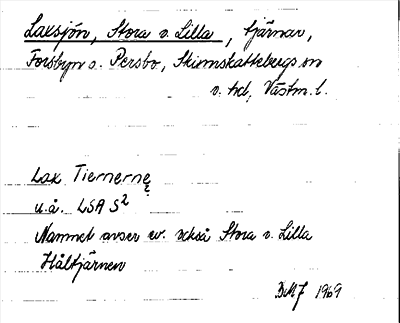 Laxsjön, Stora o. Lilla, tjärnar,
Forsbyn o. Persbo, Skinnskattebergs sn
o. hd, Västm. l.
Lax Tiernerne
u.å. LSA S²
Namnet avser ev. också Stora o. Lilla
Håltjärnen
1969